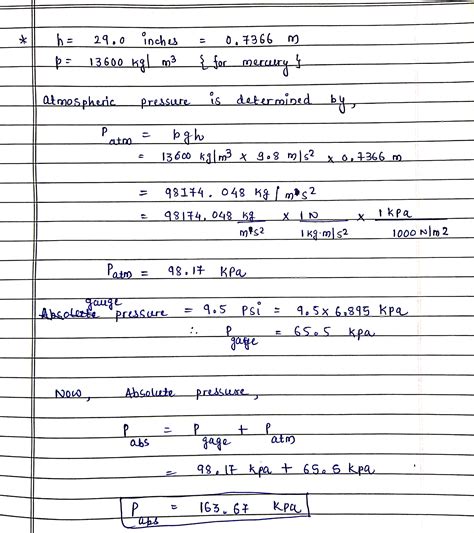 * h = 29.0 inches = 0.7366 m
ρ = 13600 kg/m³ { for mercury }
Atmospheric pressure is determined by,
P atm = ρgh
= 13600 kg/m³ x 9.8 m/s² x 0.7366 m
= 98174.048 kg/m s²
= 98174.048 kg/m s² x 1 N/1 kg·m/s² x 1 kPa/1000 N/m2
P atm = 98.17 kPa
gauge
Absolute pressure = 9.5 Psi = 9.5 x 6.895 kPa
∴ P gage = 65.5 kPa
Now, Absolute pressure,
P abs = P gage + P atm
= 98.17 kPa + 65.5 kPa
P abs = 163.67 kPa